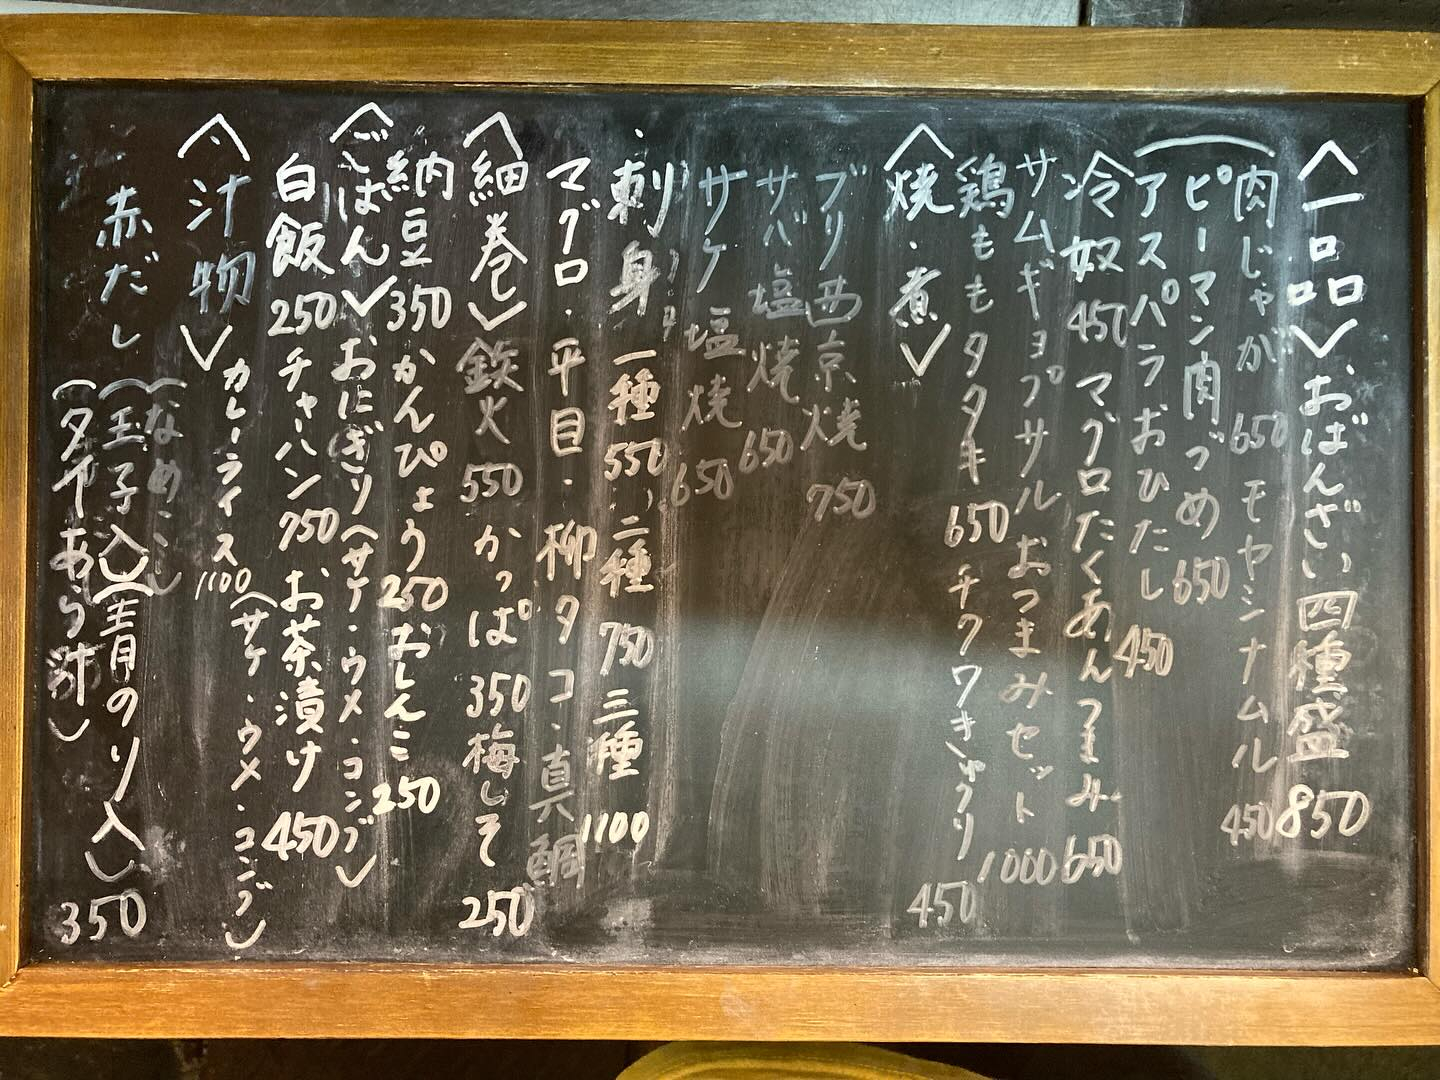 〈一品〉おばんざい四種盛850
肉じゃが650モヤシナムル450
ピーマン肉づめ650
アスパラおひたし450
冷奴450マグロたくあんつまみ650
サムギョプサルおつまみセット1000
鶏ももタタキ650チクワきゅうり450
〈焼・煮〉
ブリ西京焼750
サバ塩焼650
サケ塩焼650
刺身一種550二種750三種1100
マグロ・平目・柳タコ・真鯛
〈細巻〉鉄火550かっぱ350梅しそ250
納豆350かんぴょう250おしんこ250
〈ごはん〉おにぎり(サケ・ウメ・コンブ)
白飯250チャーハン750お茶漬け450
(サケ・ウメ・コンブ)
カレーライス1100
〈汁物〉
赤だし(なめこ)
(玉子入)(青のり入)350
(タイあら汁)